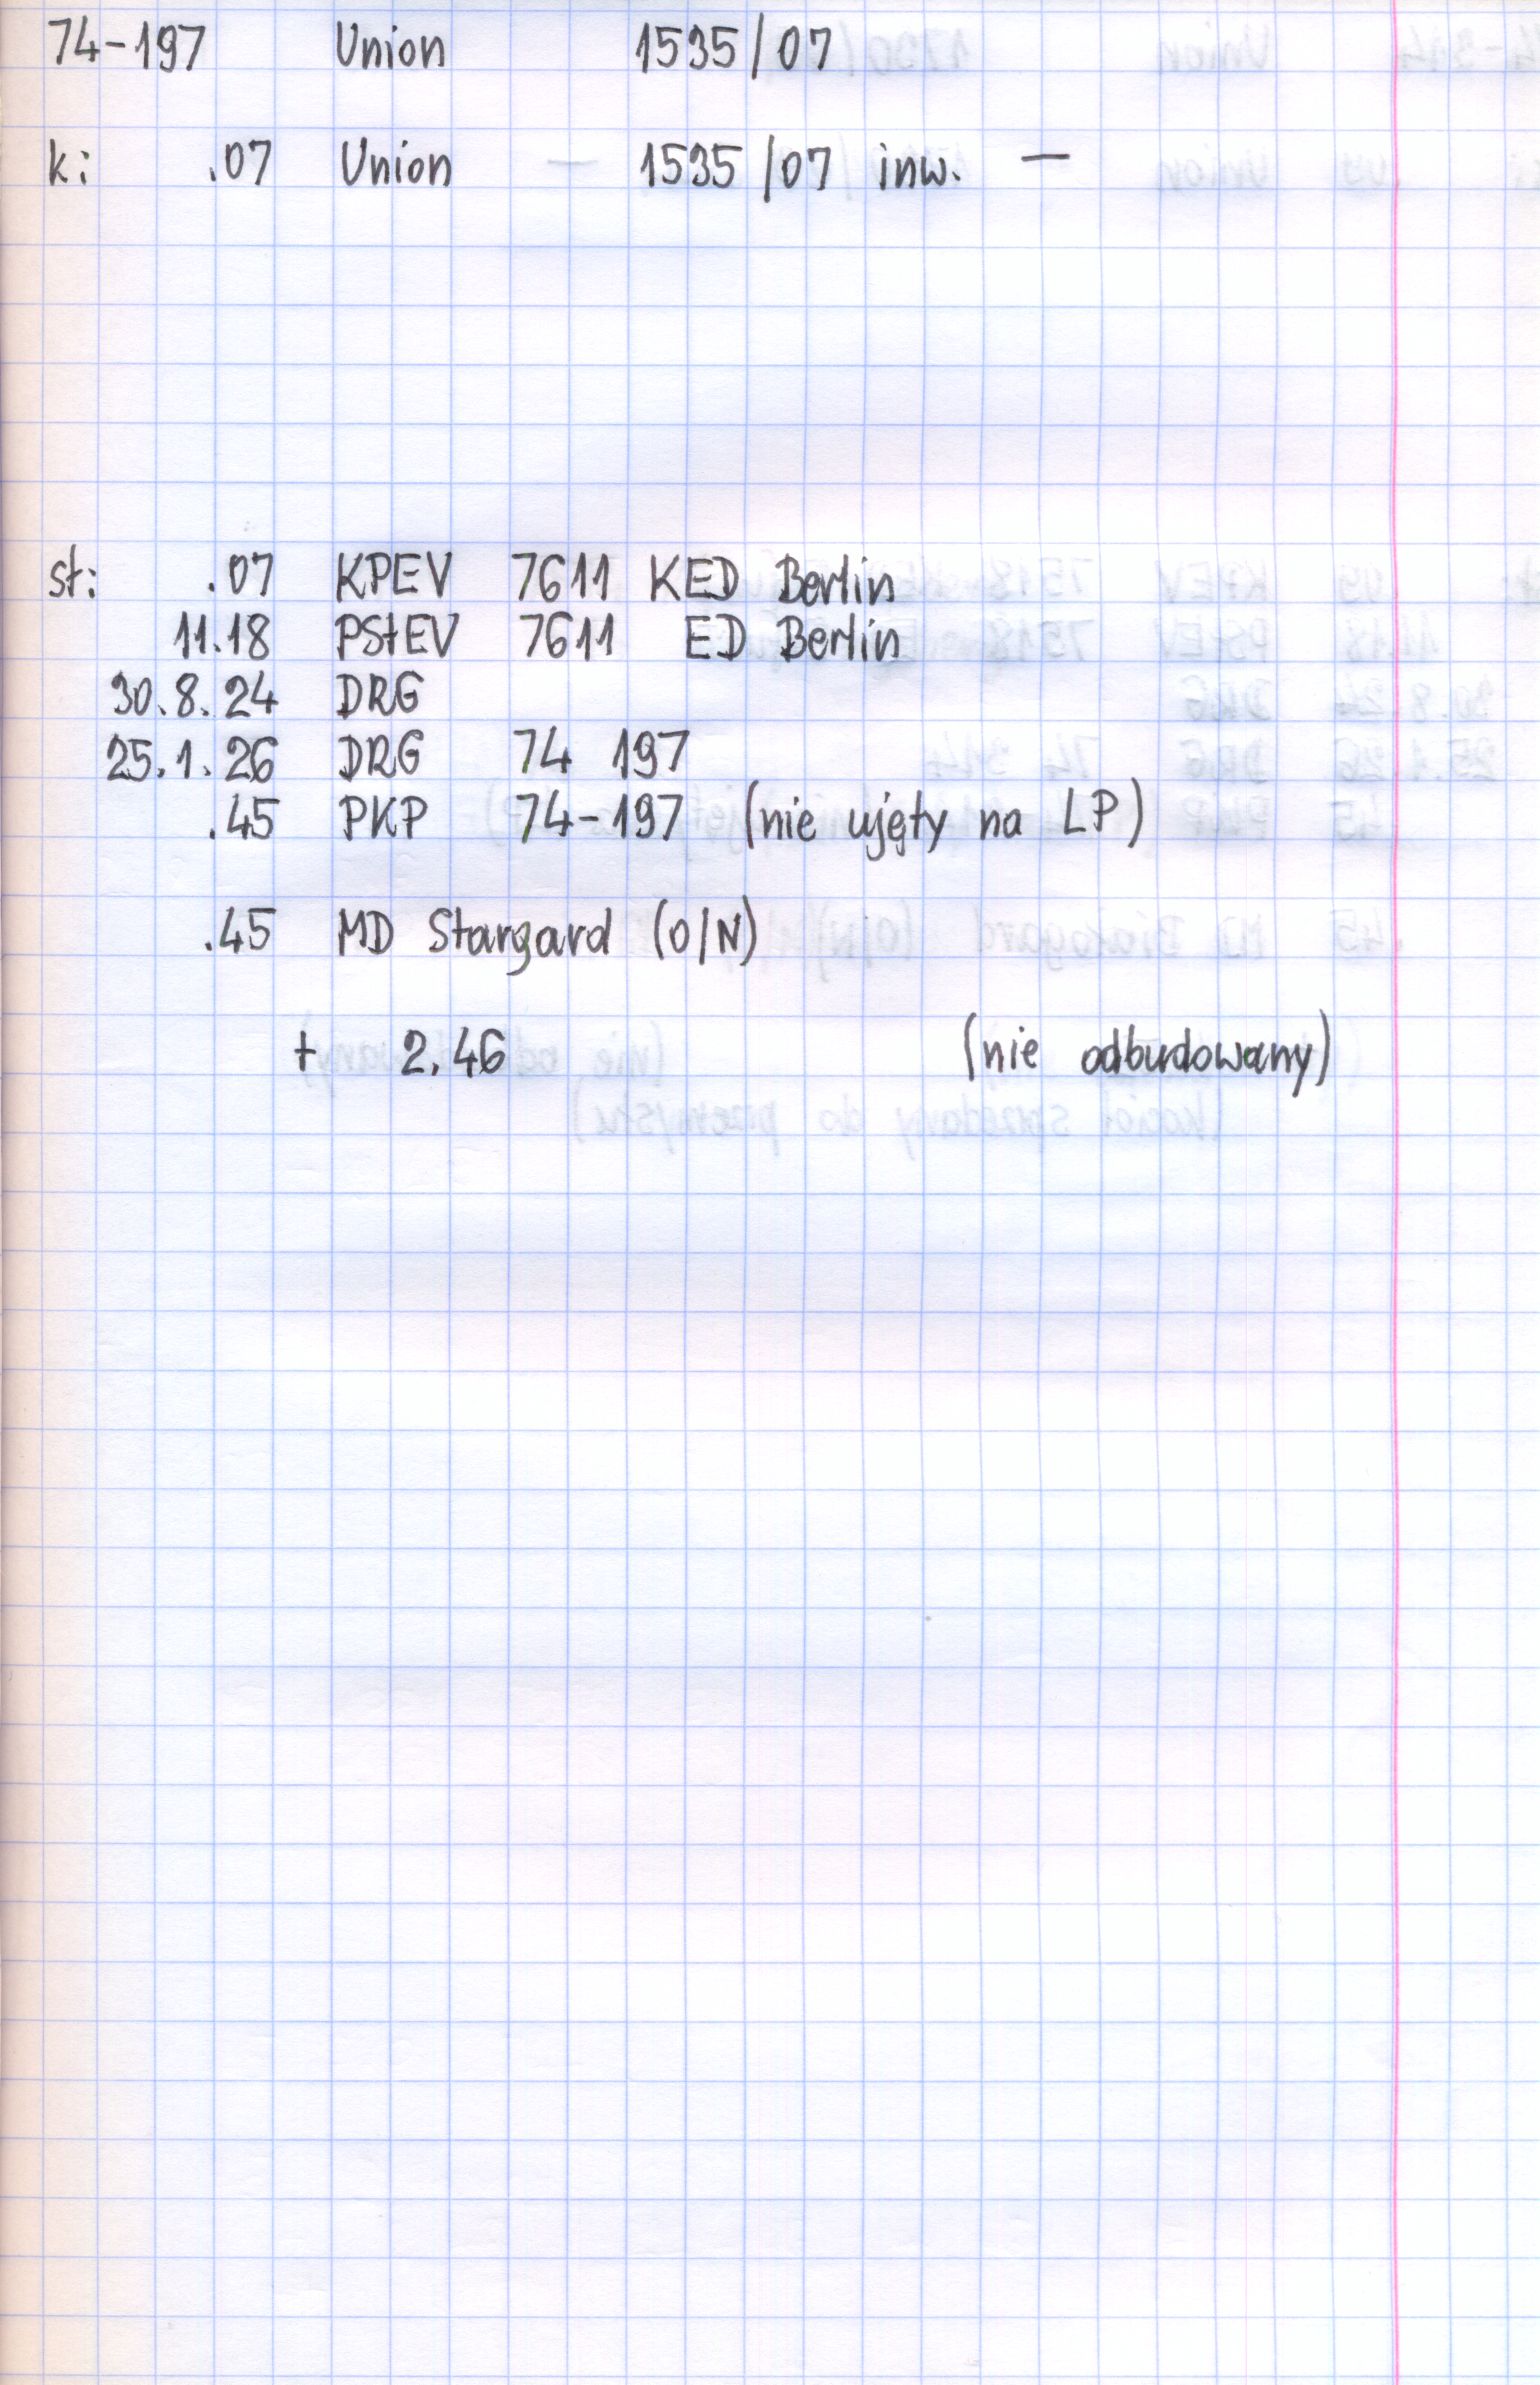 74-197 Union 1535/07
k: .07 Union — 1535/07 inw. —
st: .07 KPEV 7611 KED Berlin
11.18 PStEV 7611 ED Berlin
30.8.24 DRG
25.1.26 DRG 74 197
.45 PKP 74-197 (nie ujęty na LP)
.45 MD Stargard (O/N)
+ 2.46 (nie odbudowany)